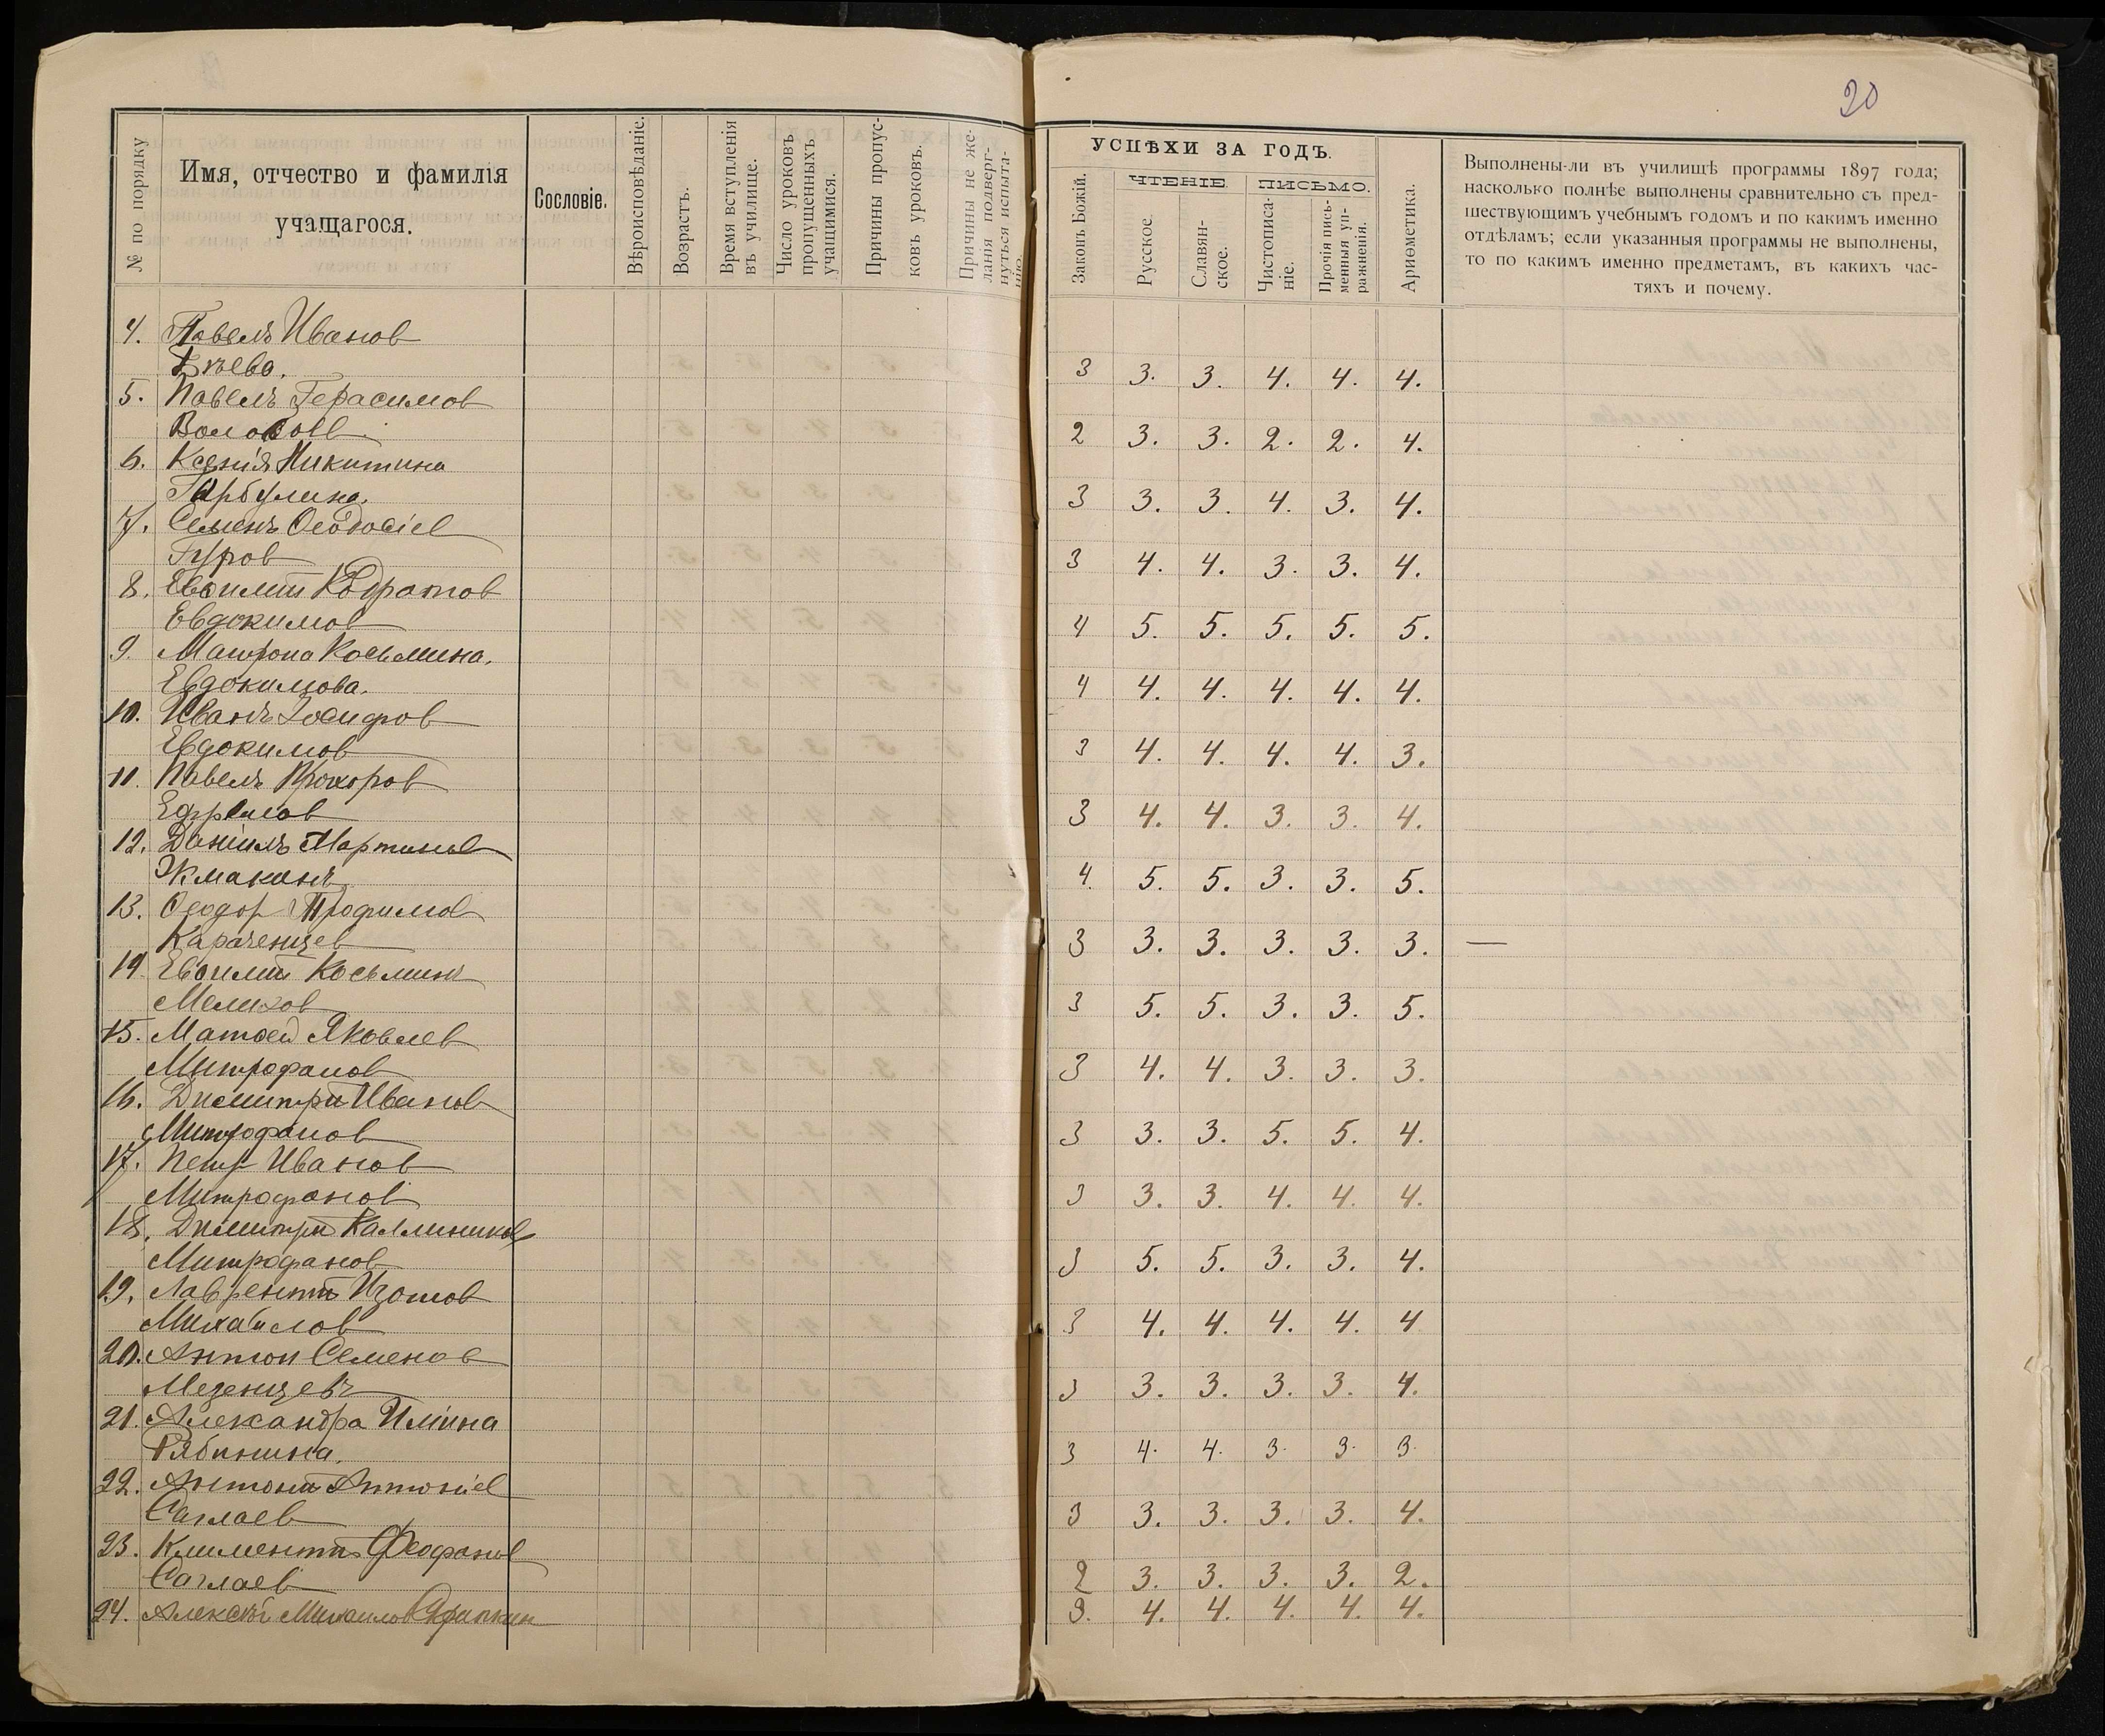 20
№ по порядку
Имя, отчество и фамилія
учащагося.
Сословіе.
Вѣроисповѣданіе.
Возрастъ.
Время вступленія
въ училище.
Число уроковъ
пропущенныхъ
учащимися.
Причины пропус-
ковъ уроковъ.
Причины не же-
ланія подверг-
нуться испыта-
нію.
УСПѢХИ ЗА ГОДЪ.
Законъ Божій.
ЧТЕНІЕ.
ПИСЬМО.
Русское.
Славян-
ское.
Чистописа-
ніе.
Прочія пись-
менныя уп-
ражненія.
Ариѳметика.
Выполнены-ли въ училищѣ программы 1897 года;
насколько полнѣе выполнены сравнительно съ пред-
шествующимъ учебнымъ годомъ и по какимъ именно
отдѣламъ; если указанныя программы не выполнены,
то по какимъ именно предметамъ, въ какихъ час-
тяхъ и почему.
4. Павелъ Иванов
3 3. 3. 4. 4. 4.
5. Павелъ Герасимов
2 3. 3. 2. 2. 4.
6. Ксенія Никитина
Гарбулина.
3 3. 3. 4. 3. 4.
7. Семенъ Ѳеодосіев
Гуров
3 4. 4. 3. 3. 4.
8. Евѳимій Кодратов
Евдокимов
4 5. 5. 5. 5. 5.
9. Матрона Косьмина.
Евдокимова.
4 4. 4. 4. 4. 4.
10. Иванъ Іосифов
Евдокимов
3 4. 4. 4. 4. 3.
11. Павелъ Прохоров
Ефремов
3 4. 4. 3. 3. 4.
12. Даніилъ Мартинов
Жмакинъ
4. 5. 5. 3. 3. 5.
13. Ѳеодор Трофимов
Караченцев
3 3. 3. 3. 3. 3. —
14. Евѳимій Косьмин
Мелихов
3 5. 5. 3. 3. 5.
15. Матѳей Яковлев
Митрофанов
3 4. 4. 3. 3. 3.
16. Димитрій Иванов
Митрофанов
3 3. 3. 5. 5. 4.
17. Петр Иванов
Митрофанов
3 3. 3. 4. 4. 4.
18. Димитрій Каллиников
Митрофанов
3 5. 5. 3. 3. 4.
19. Лаврентій Изотов
Михайлов
3 4. 4. 4. 4. 4
20. Антон Семенов
Мезенцевъ
3 3. 3. 3. 3. 4.
21. Александра Иліина
Рябинина.
3 4. 4. 3. 3. 3.
22. Антоній Антоніев
Саглаев
3 3. 3. 3. 3. 4.
23. Климентій Феофанов
Саглаев
2 3. 3. 3. 3. 2.
24. Алексѣй Михаилов
3. 4. 4. 4. 4. 4.